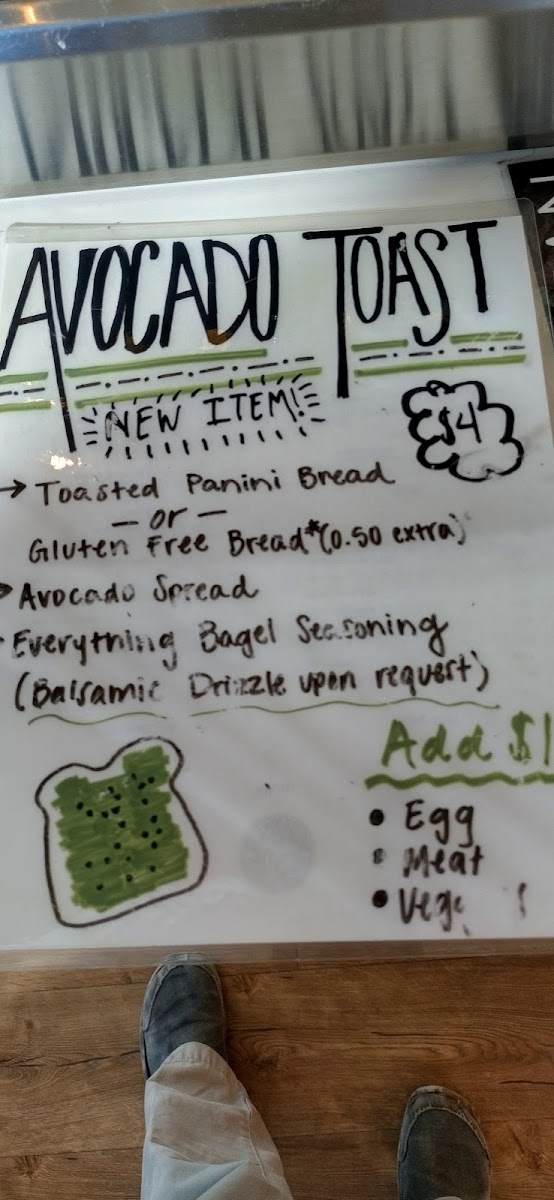 AVOCADO TOAST
NEW ITEM!
$4
→ Toasted Panini Bread
— or —
Gluten Free Bread*(0.50 extra)
Avocado Spread
Everything Bagel Seasoning
(Balsamic Drizzle upon request)
Add $1
• Egg
• Meat